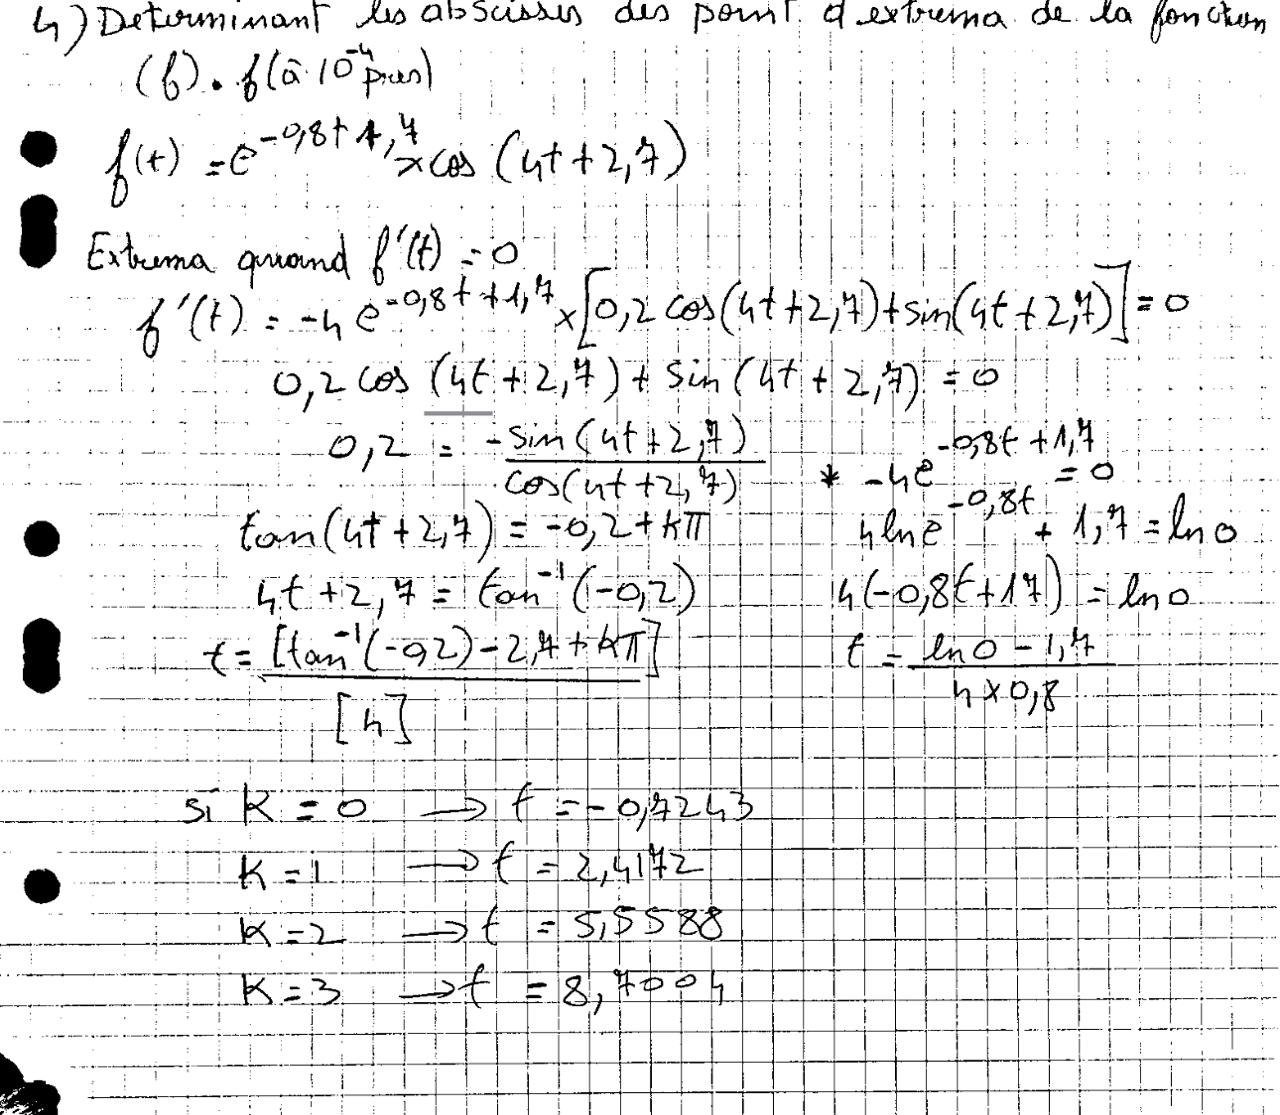 4) Determinant les abscisses des point d'extrema de la fonction
(f). f(à 10^-4 près)
f(t) = e^-0,8t+1,7 × cos (4t+2,7)
Extrema quand f'(t) = 0
f'(t) = -4 e^-0,8t+1,7 × [0,2 cos(4t+2,7)+sin(4t+2,7)] = 0
0,2 cos (4t+2,7) + sin (4t+2,7) = 0
0,2 = -sin(4t+2,7) / cos(4t+2,7)
tan(4t+2,7) = -0,2+kπ
4t+2,7 = tan^-1(-0,2)
t = [tan^-1(-0,2)-2,7+kπ] / [4]
* -4e^-0,8t+1,7 = 0
4 ln e^-0,8t + 1,7 = ln 0
4(-0,8t+17) = ln 0
t = ln 0 - 1,7 / 4×0,8
si K = 0 → t = -0,7243
K = 1 → t = 2,4172
K = 2 → t = 5,5588
K = 3 → t = 8,7004